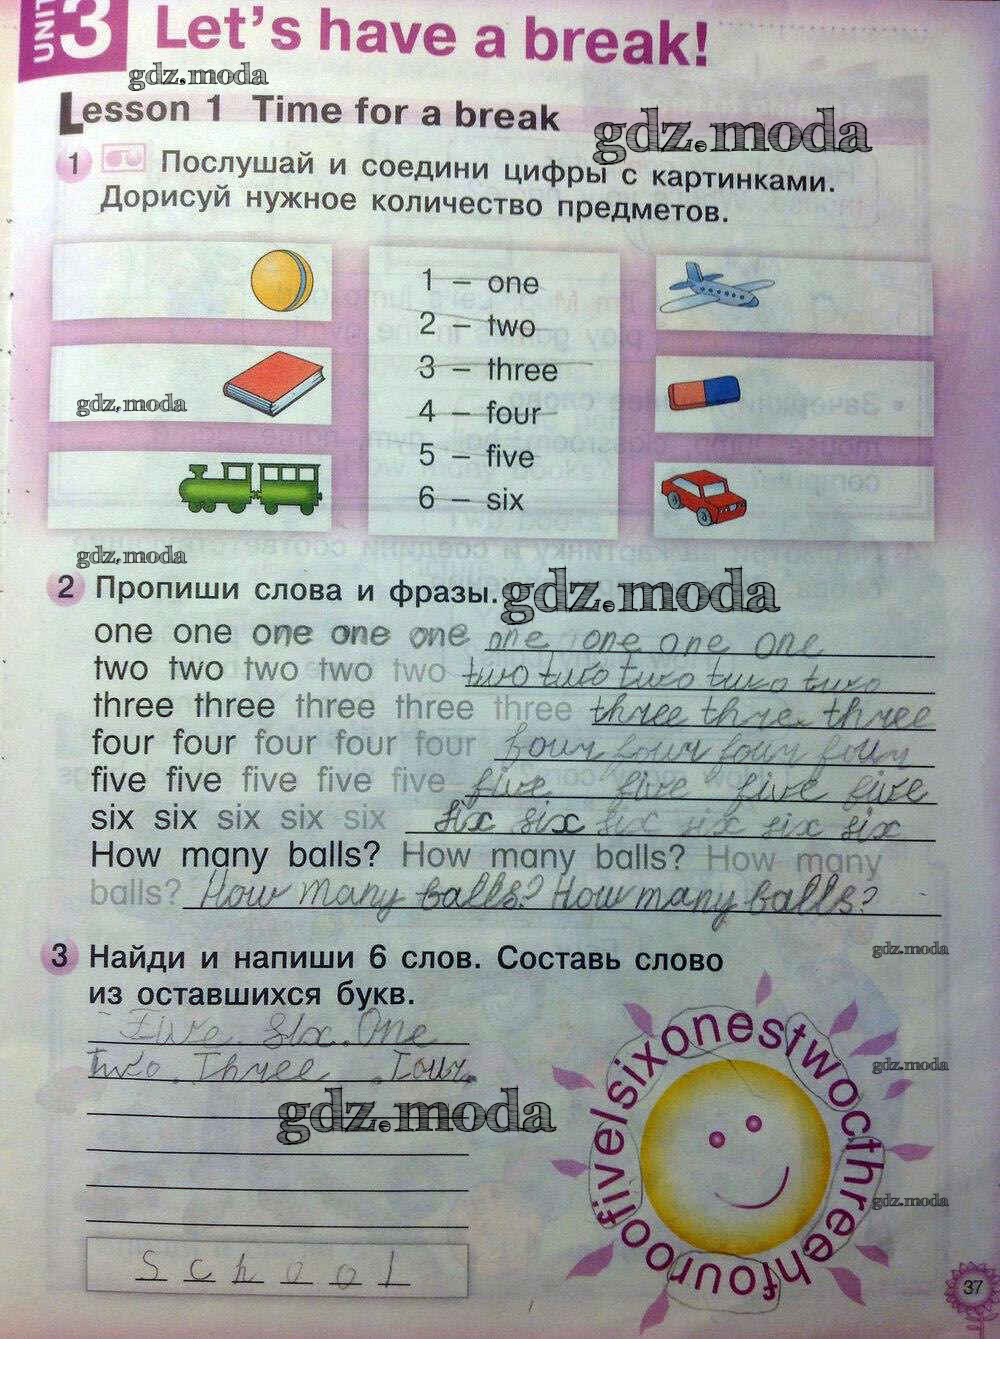 UNIT 3 Let's have a break!
gdz.moda
Lesson 1 Time for a break
gdz.moda
1 Послушай и соедини цифры с картинками.
Дорисуй нужное количество предметов.
1 – one
2 – two
3 – three
4 – four
5 – five
6 – six
gdz.moda
gdz.moda
2 Пропиши слова и фразы.
gdz.moda
one one one one one one one one one
two two two two two two two two two two
three three three three three three three three
four four four four four four four four four
five five five five five five five five five
six six six six six six six six six six six
How many balls? How many balls? How many
balls? How many balls? How many balls?
gdz.moda
3 Найди и напиши 6 слов. Составь слово
из оставшихся букв.
Five. Six. One
Two. Three. Four.
gdz.moda
gdz.moda
gdz.moda
fivelsixonestwocthreehfouroo
S c h o o l
37